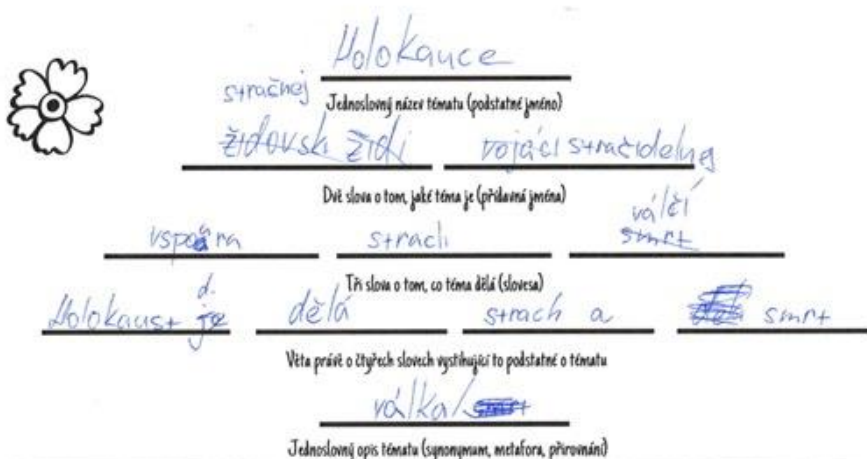 Holokauce
stračnej
Jednoslovný název tématu (podstatné jméno)
židovski židi vojáci stračidelnej
Dvě slova o tom, jaké téma je (přídavná jména)
válčí
strach smrt
Tři slova o tom, co téma dělá (slovesa)
d.
Holokaust je dělá strach a smrt
Věta právě o čtyřech slovech vystihující to podstatné o tématu
válka/smrt
Jednoslovný opis tématu (synonymum, metafora, přirovnání)